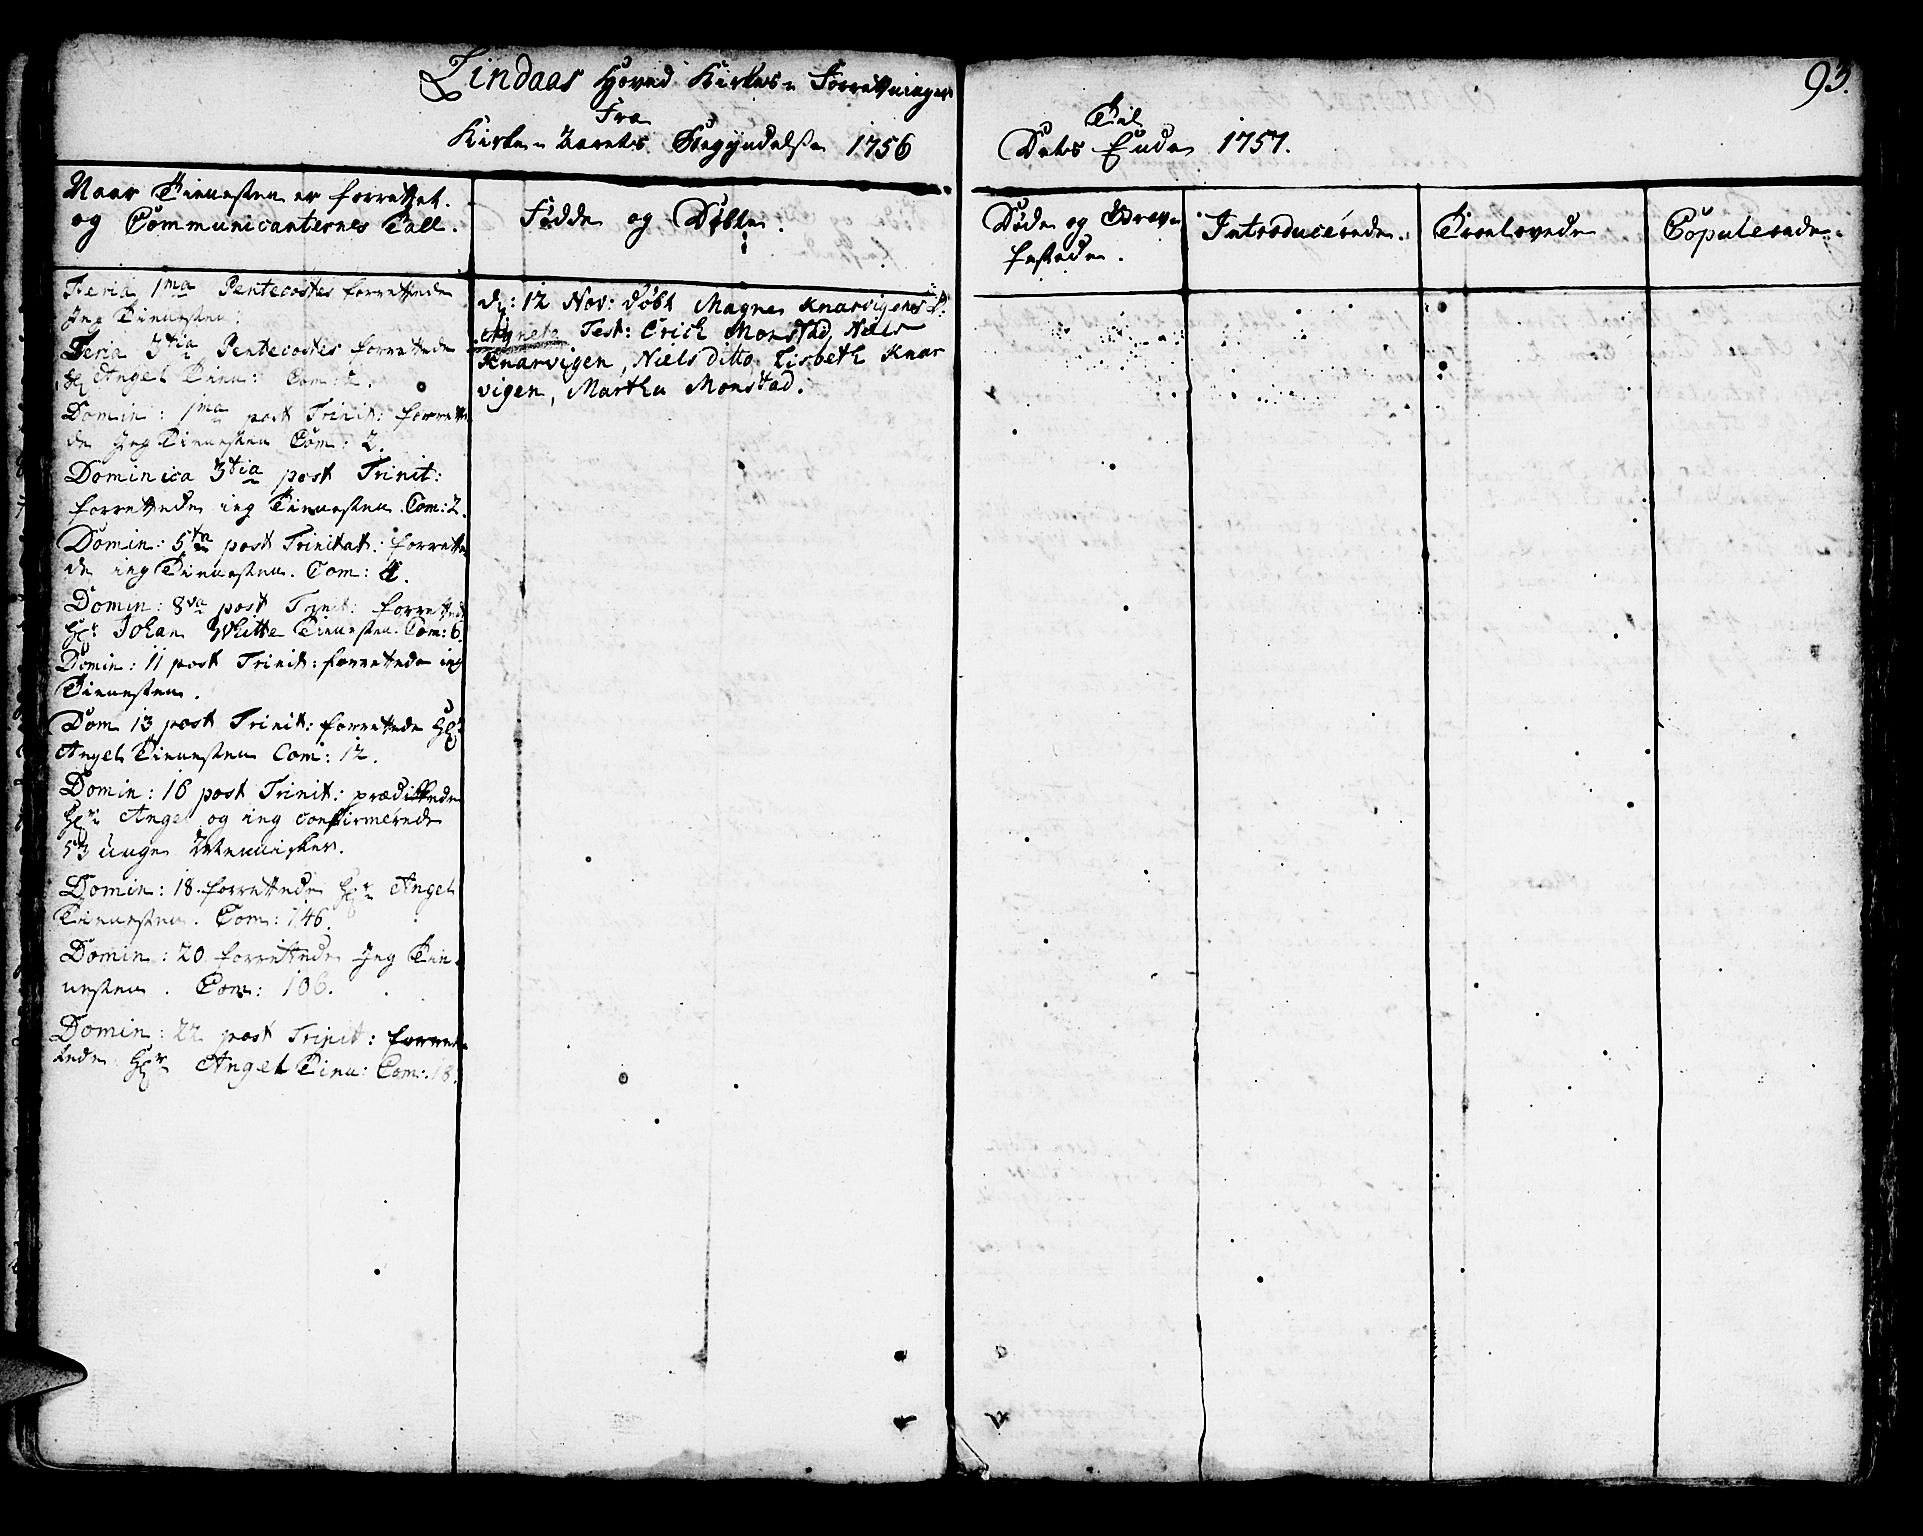 93.
Lindaas Hoved Kirkes Forretninger
Fra
Kirke-Aarets Begyndelse 1756
Til
Dets Ende 1757.
Naar Tienesten er forrettet.
og Communicanternes Tall.
Fødde og Døbte.
Døde og Grav-
festede.
Introducerede.
Troelovede
Copulerede.
Feria 1ma Pentecostes forrettede
Jeg Tienesten.
Feria 3tia Pentecostes forrettede
Hr Angel Tien: Com:
Domin: 1ma post Trinit: forrette
de Jeg Tienesten Com: 2.
Dominica 3tia post Trinit:
forrettede ieg Tienesten. Com: 2.
Domin: 5ta post Trinitat: forrette
de ieg Tienesten. Com: 4.
Domin: 8va post Trinit: forrettede
Hr Johan Whitte Tienesten. Com: 6.
Domin: 11 post Trinit: forrettede ieg
Tienesten.
Dom 13 post Trinit: forrettede Hr
Angel Tienesten Com: 12.
Domin: 16 post Trinit: prædikede
Hr Angel og ieg confirmerede
53 unge Mennisker.
Domin: 18. forrettede Hr Angel
Tienesten. Com: 146.
Domin: 20 forrettede Jeg Tie-
nesten. Com: 106.
Domin: 22 post Trinit: forret-
tede Hr Angel Tien: Com: 18.
d: 12 Nov: døbt Magne Knarvigens D:
Agnete Test: Erich Monstad, Niels
Knarvigen, Niels Ditto, Lisbeth Knar
vigen, Martha Monstad.